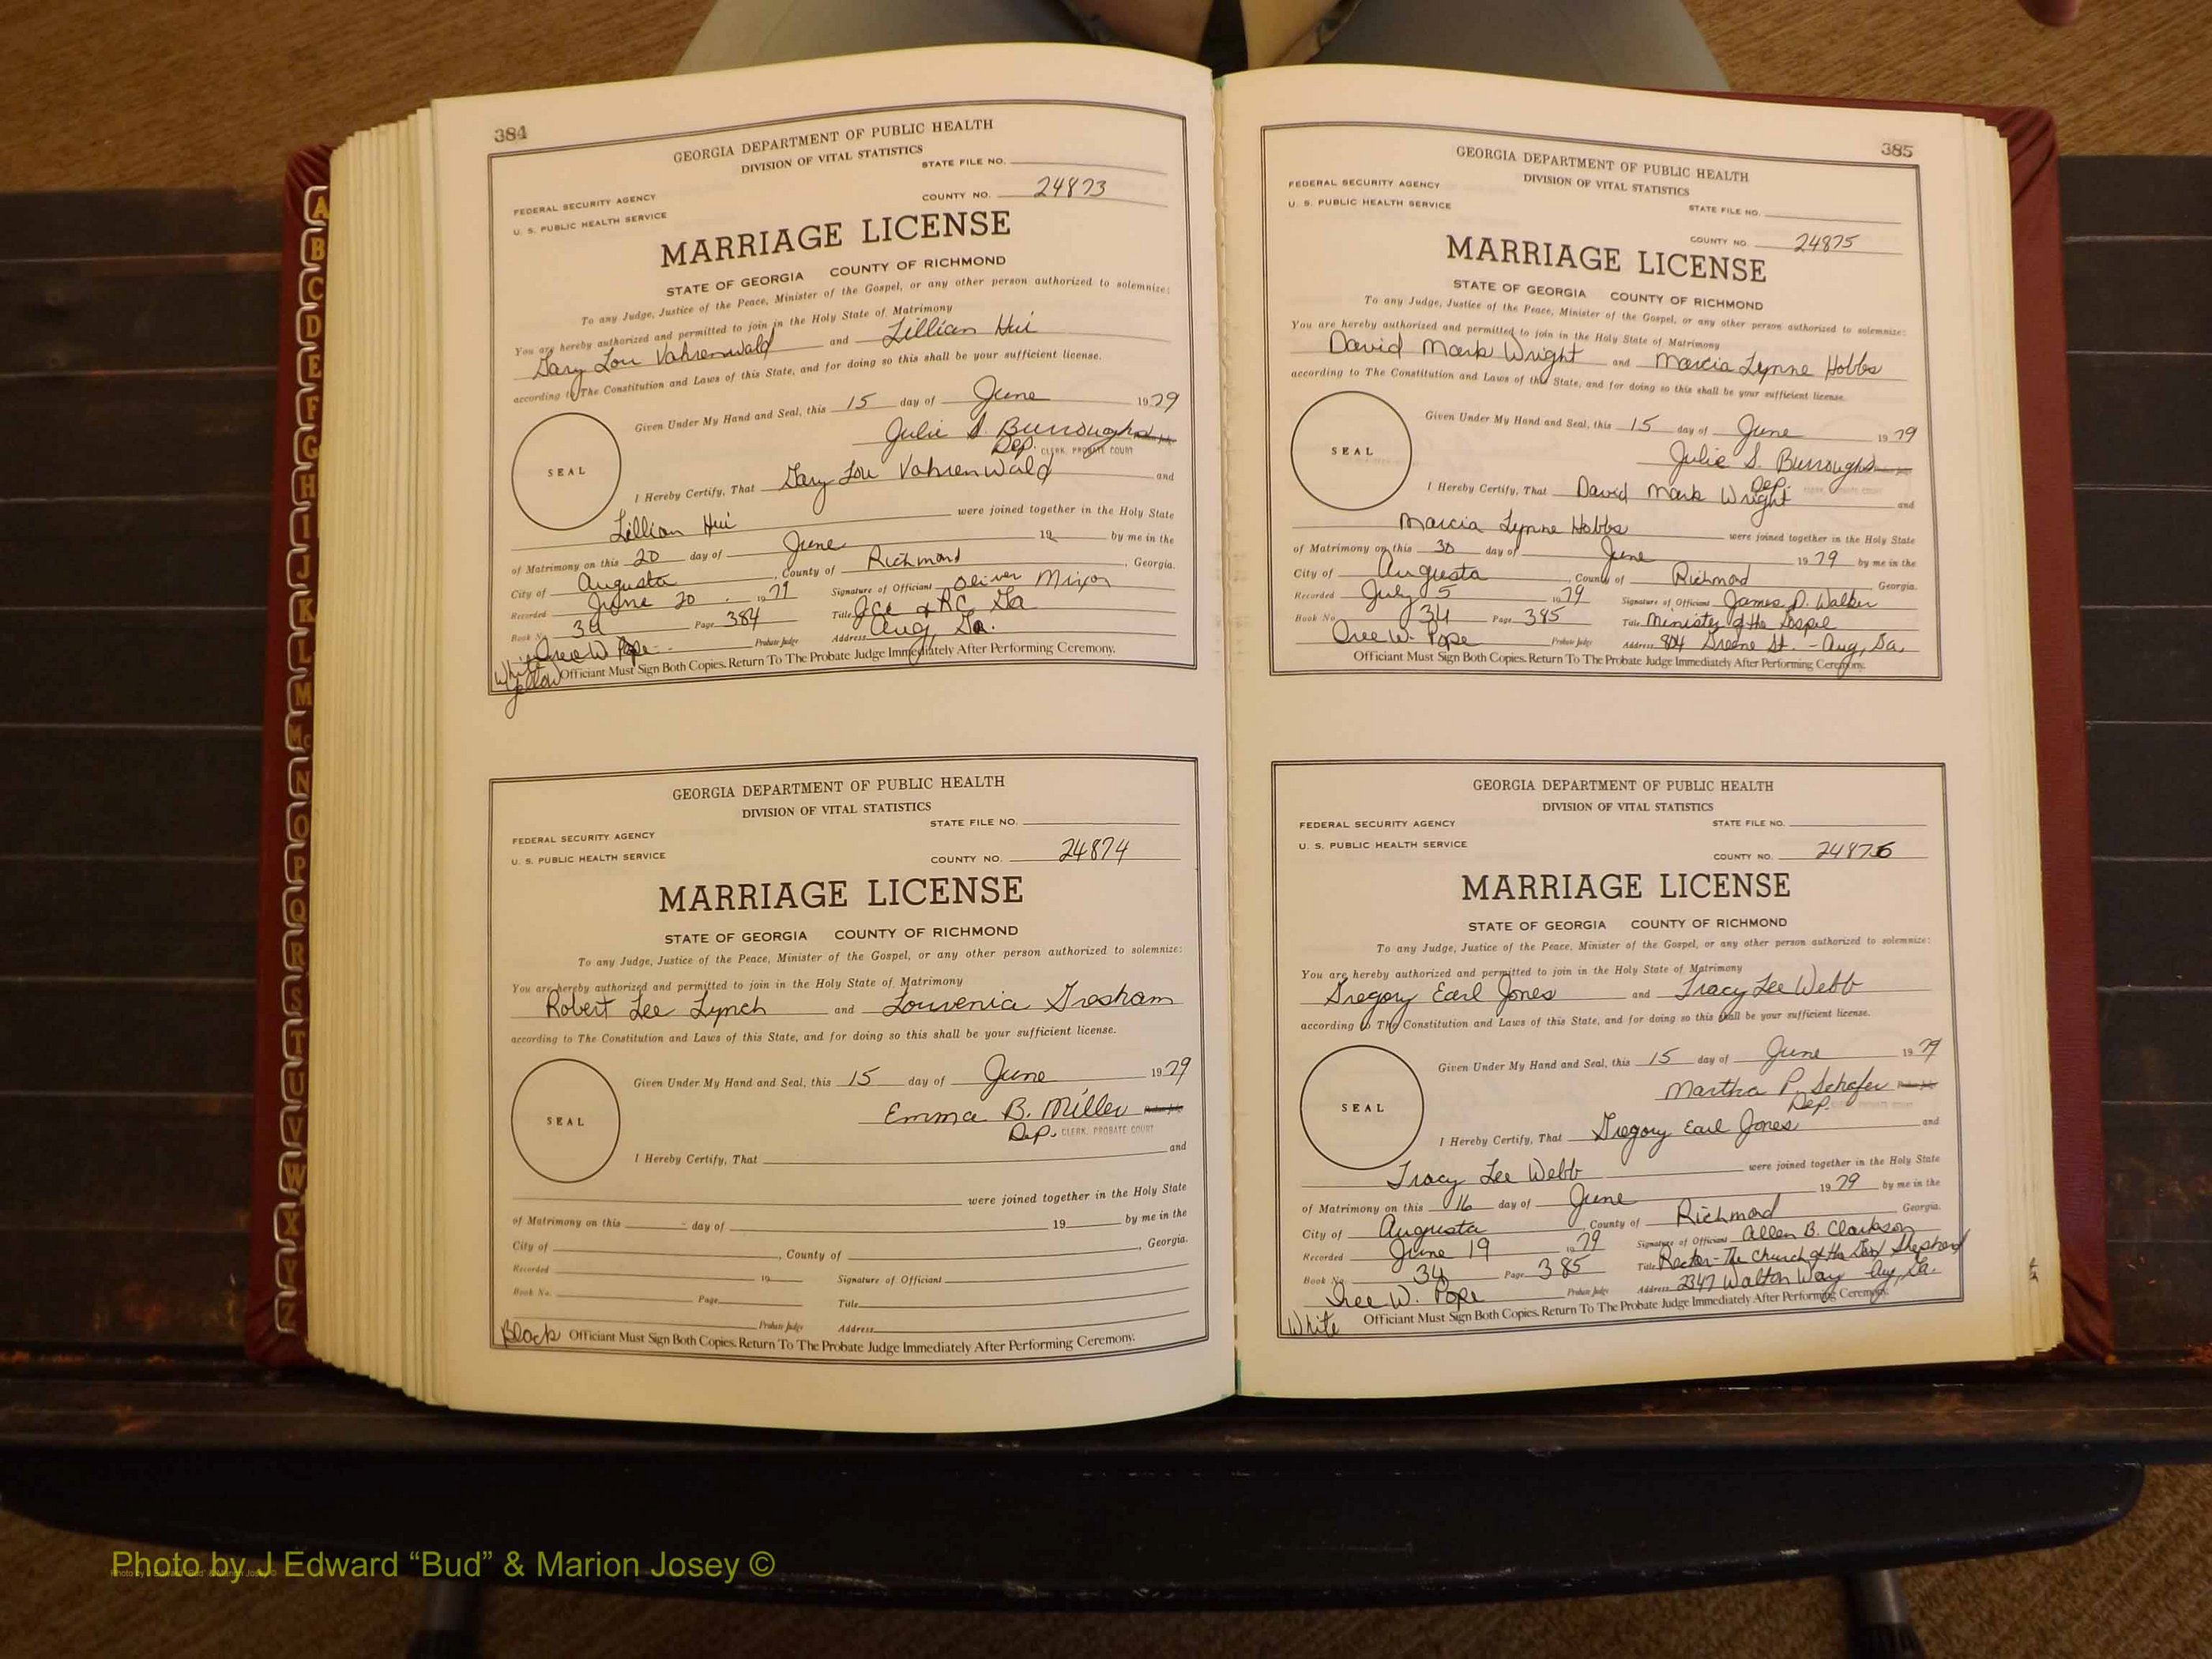 384
GEORGIA DEPARTMENT OF PUBLIC HEALTH
DIVISION OF VITAL STATISTICS
STATE FILE NO.
FEDERAL SECURITY AGENCY
COUNTY NO. 24873
U. S. PUBLIC HEALTH SERVICE
MARRIAGE LICENSE
STATE OF GEORGIA COUNTY OF RICHMOND
To any Judge, Justice of the Peace, Minister of the Gospel, or any other person authorized to solemnize:
You are hereby authorized and permitted to join in the Holy State of Matrimony
Gary Lou Vahrenwald and Lillian Hui
according to The Constitution and Laws of this State, and for doing so this shall be your sufficient license.
Given Under My Hand and Seal, this 15 day of June 1979
Julie S. Burroughs
Dep. CLERK, PROBATE COURT
SEAL
I Hereby Certify, That Gary Lou Vahrenwald and
Lillian Hui were joined together in the Holy State
of Matrimony on this 20 day of June 19 by me in the
City of Augusta, County of Richmond, Georgia.
Recorded June 20 1979 Signature of Official Oliver Mixon
Book No. 34 Page 384 Title
Probate Judge Address Aug, Ga.
White
Yellow Officiant Must Sign Both Copies. Return To The Probate Judge Immediately After Performing Ceremony.
GEORGIA DEPARTMENT OF PUBLIC HEALTH
DIVISION OF VITAL STATISTICS
STATE FILE NO.
FEDERAL SECURITY AGENCY
U. S. PUBLIC HEALTH SERVICE
COUNTY NO. 24874
MARRIAGE LICENSE
STATE OF GEORGIA COUNTY OF RICHMOND
To any Judge, Justice of the Peace, Minister of the Gospel, or any other person authorized to solemnize:
You are hereby authorized and permitted to join in the Holy State of Matrimony
Robert Lee Lynch and Louvenia Gresham
according to The Constitution and Laws of this State, and for doing so this shall be your sufficient license.
Given Under My Hand and Seal, this 15 day of June 1979
Emma B. Miller
Dep. CLERK, PROBATE COURT
SEAL
I Hereby Certify, That and
were joined together in the Holy State
of Matrimony on this day of 19 by me in the
City of , County of , Georgia.
Recorded 19 Signature of Official
Book No. Page Title
Probate Judge Address
Black Officiant Must Sign Both Copies. Return To The Probate Judge Immediately After Performing Ceremony.
385
GEORGIA DEPARTMENT OF PUBLIC HEALTH
DIVISION OF VITAL STATISTICS
FEDERAL SECURITY AGENCY
U. S. PUBLIC HEALTH SERVICE
STATE FILE NO.
COUNTY NO. 24875
MARRIAGE LICENSE
STATE OF GEORGIA COUNTY OF RICHMOND
To any Judge, Justice of the Peace, Minister of the Gospel, or any other person authorized to solemnize:
You are hereby authorized and permitted to join in the Holy State of Matrimony
David Mark Wright and Marcia Lynne Hobbs
according to The Constitution and Laws of this State, and for doing so this shall be your sufficient license.
Given Under My Hand and Seal, this 15 day of June 1979
Julie S. Burroughs
Dep. CLERK, PROBATE COURT
SEAL
I Hereby Certify, That David Mark Wright and
Marcia Lynne Hobbs were joined together in the Holy State
of Matrimony on this 30 day of June 1979 by me in the
City of Augusta, County of Richmond Georgia.
Recorded July 5 1979 Signature of Official James D. Walker
Book No. 34 Page 385 Title Minister of the Gospel
Probate Judge Address 804 Greene St. - Aug, Ga.
Officiant Must Sign Both Copies. Return To The Probate Judge Immediately After Performing Ceremony.
GEORGIA DEPARTMENT OF PUBLIC HEALTH
DIVISION OF VITAL STATISTICS
FEDERAL SECURITY AGENCY
STATE FILE NO.
U. S. PUBLIC HEALTH SERVICE
COUNTY NO. 24876
MARRIAGE LICENSE
STATE OF GEORGIA COUNTY OF RICHMOND
To any Judge, Justice of the Peace, Minister of the Gospel, or any other person authorized to solemnize:
You are hereby authorized and permitted to join in the Holy State of Matrimony
Gregory Earl Jones and Tracy Lee Webb
according to The Constitution and Laws of this State, and for doing so this shall be your sufficient license.
Given Under My Hand and Seal, this 15 day of June 1979
Martha P. Schafer
Dep.
SEAL
I Hereby Certify, That Gregory Earl Jones and
Tracy Lee Webb were joined together in the Holy State
of Matrimony on this 16 day of June 1979 by me in the
City of Augusta County of Richmond Georgia.
Recorded June 19 1979 Signature of Official Allen B. Clarkson
Book No. 34 Page 385 Title Rector - The Church of the Good Shepherd
Probate Judge Address 2347 Walton Way Aug, Ga.
White Officiant Must Sign Both Copies. Return To The Probate Judge Immediately After Performing Ceremony.
A
B
C
D
E
F
G
H
I
J
K
L
M
Mc
N
O
P
Q
R
S
T
U
V
W
X
Y
Z
Photo by J Edward “Bud” & Marion Josey ©